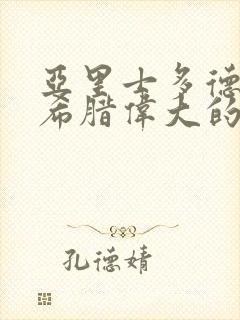 亞里士多德
希腊偉大的
孔德婧